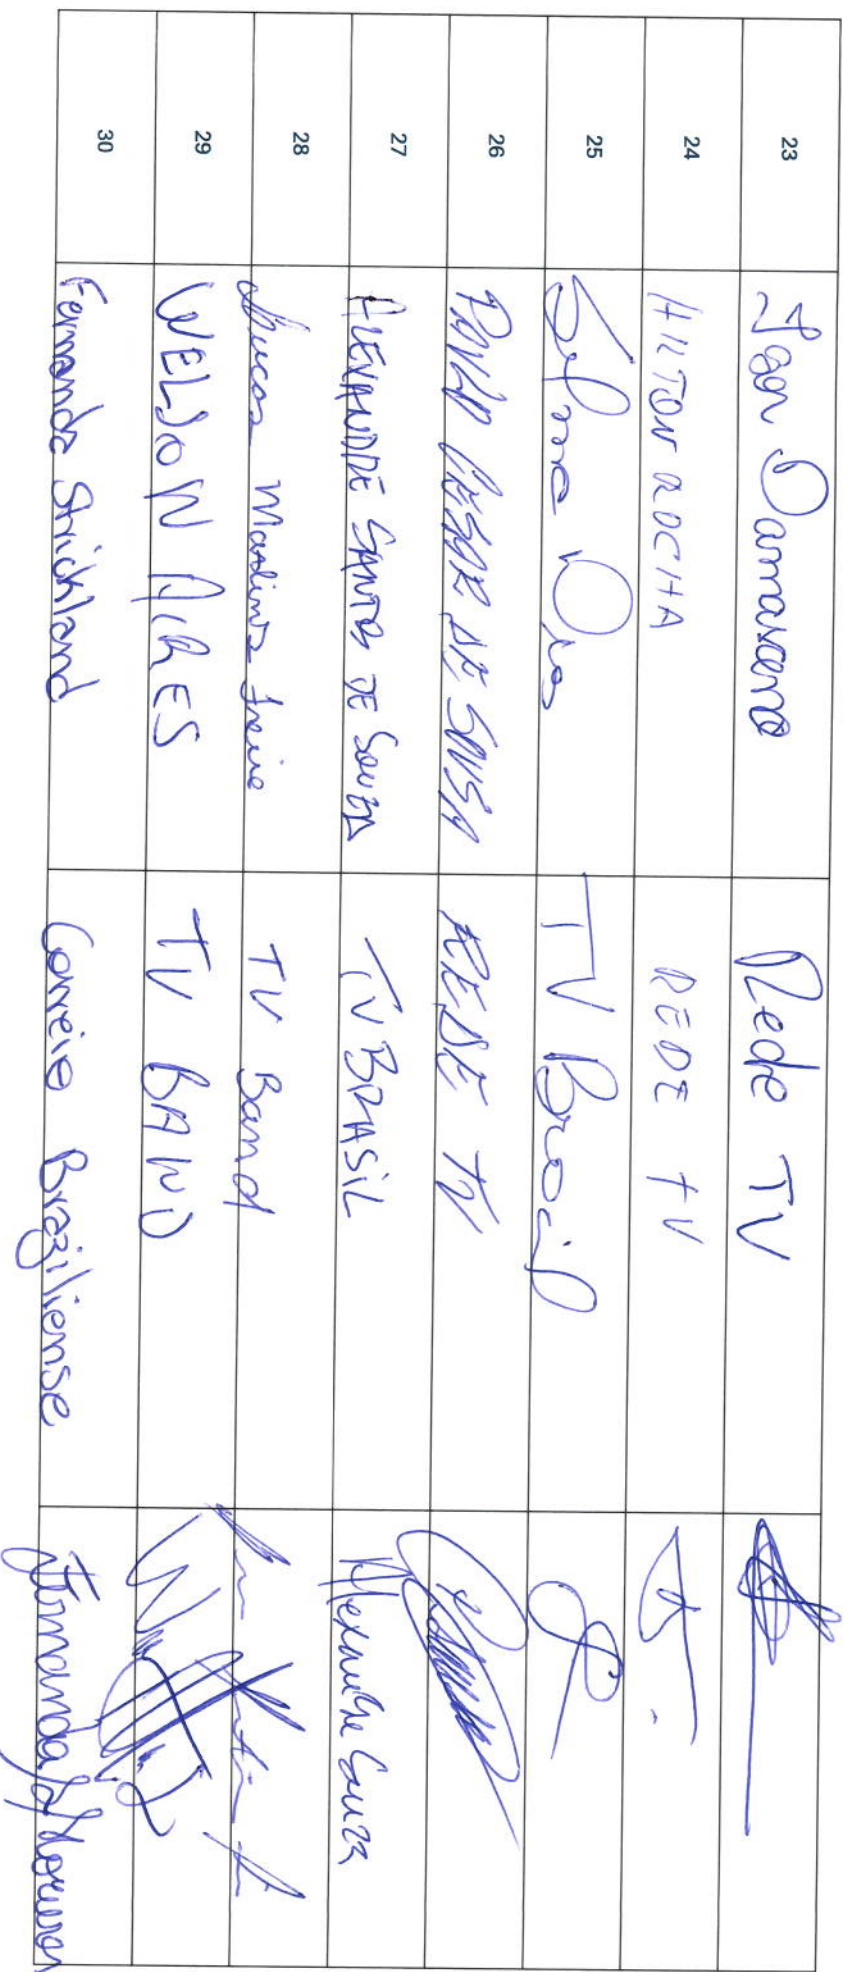 23 Ivan Damasceno Rede TV
24 AILTON ROCHA REDE TV
25 TV Brasil
26 PAULO CESAR DE SOUSA REDE TV
27 ALEXANDRE SANTOS DE SOUZA TV BRASIL Alexandre Souza
28 Lucas Martins Freire TV Band
29 WELDON AIRES TV BAND
30 Fernanda Strickland Correio Braziliense Fernanda